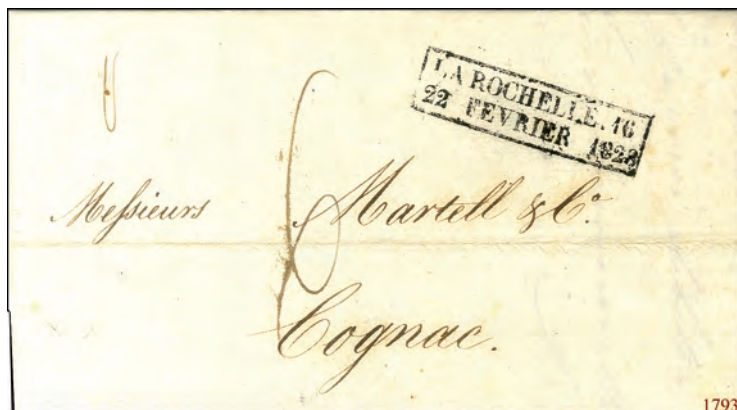 LA ROCHELLE. 16
22 FEVRIER 1828
6
Messieurs Martell & Co.
Cognac.
1793